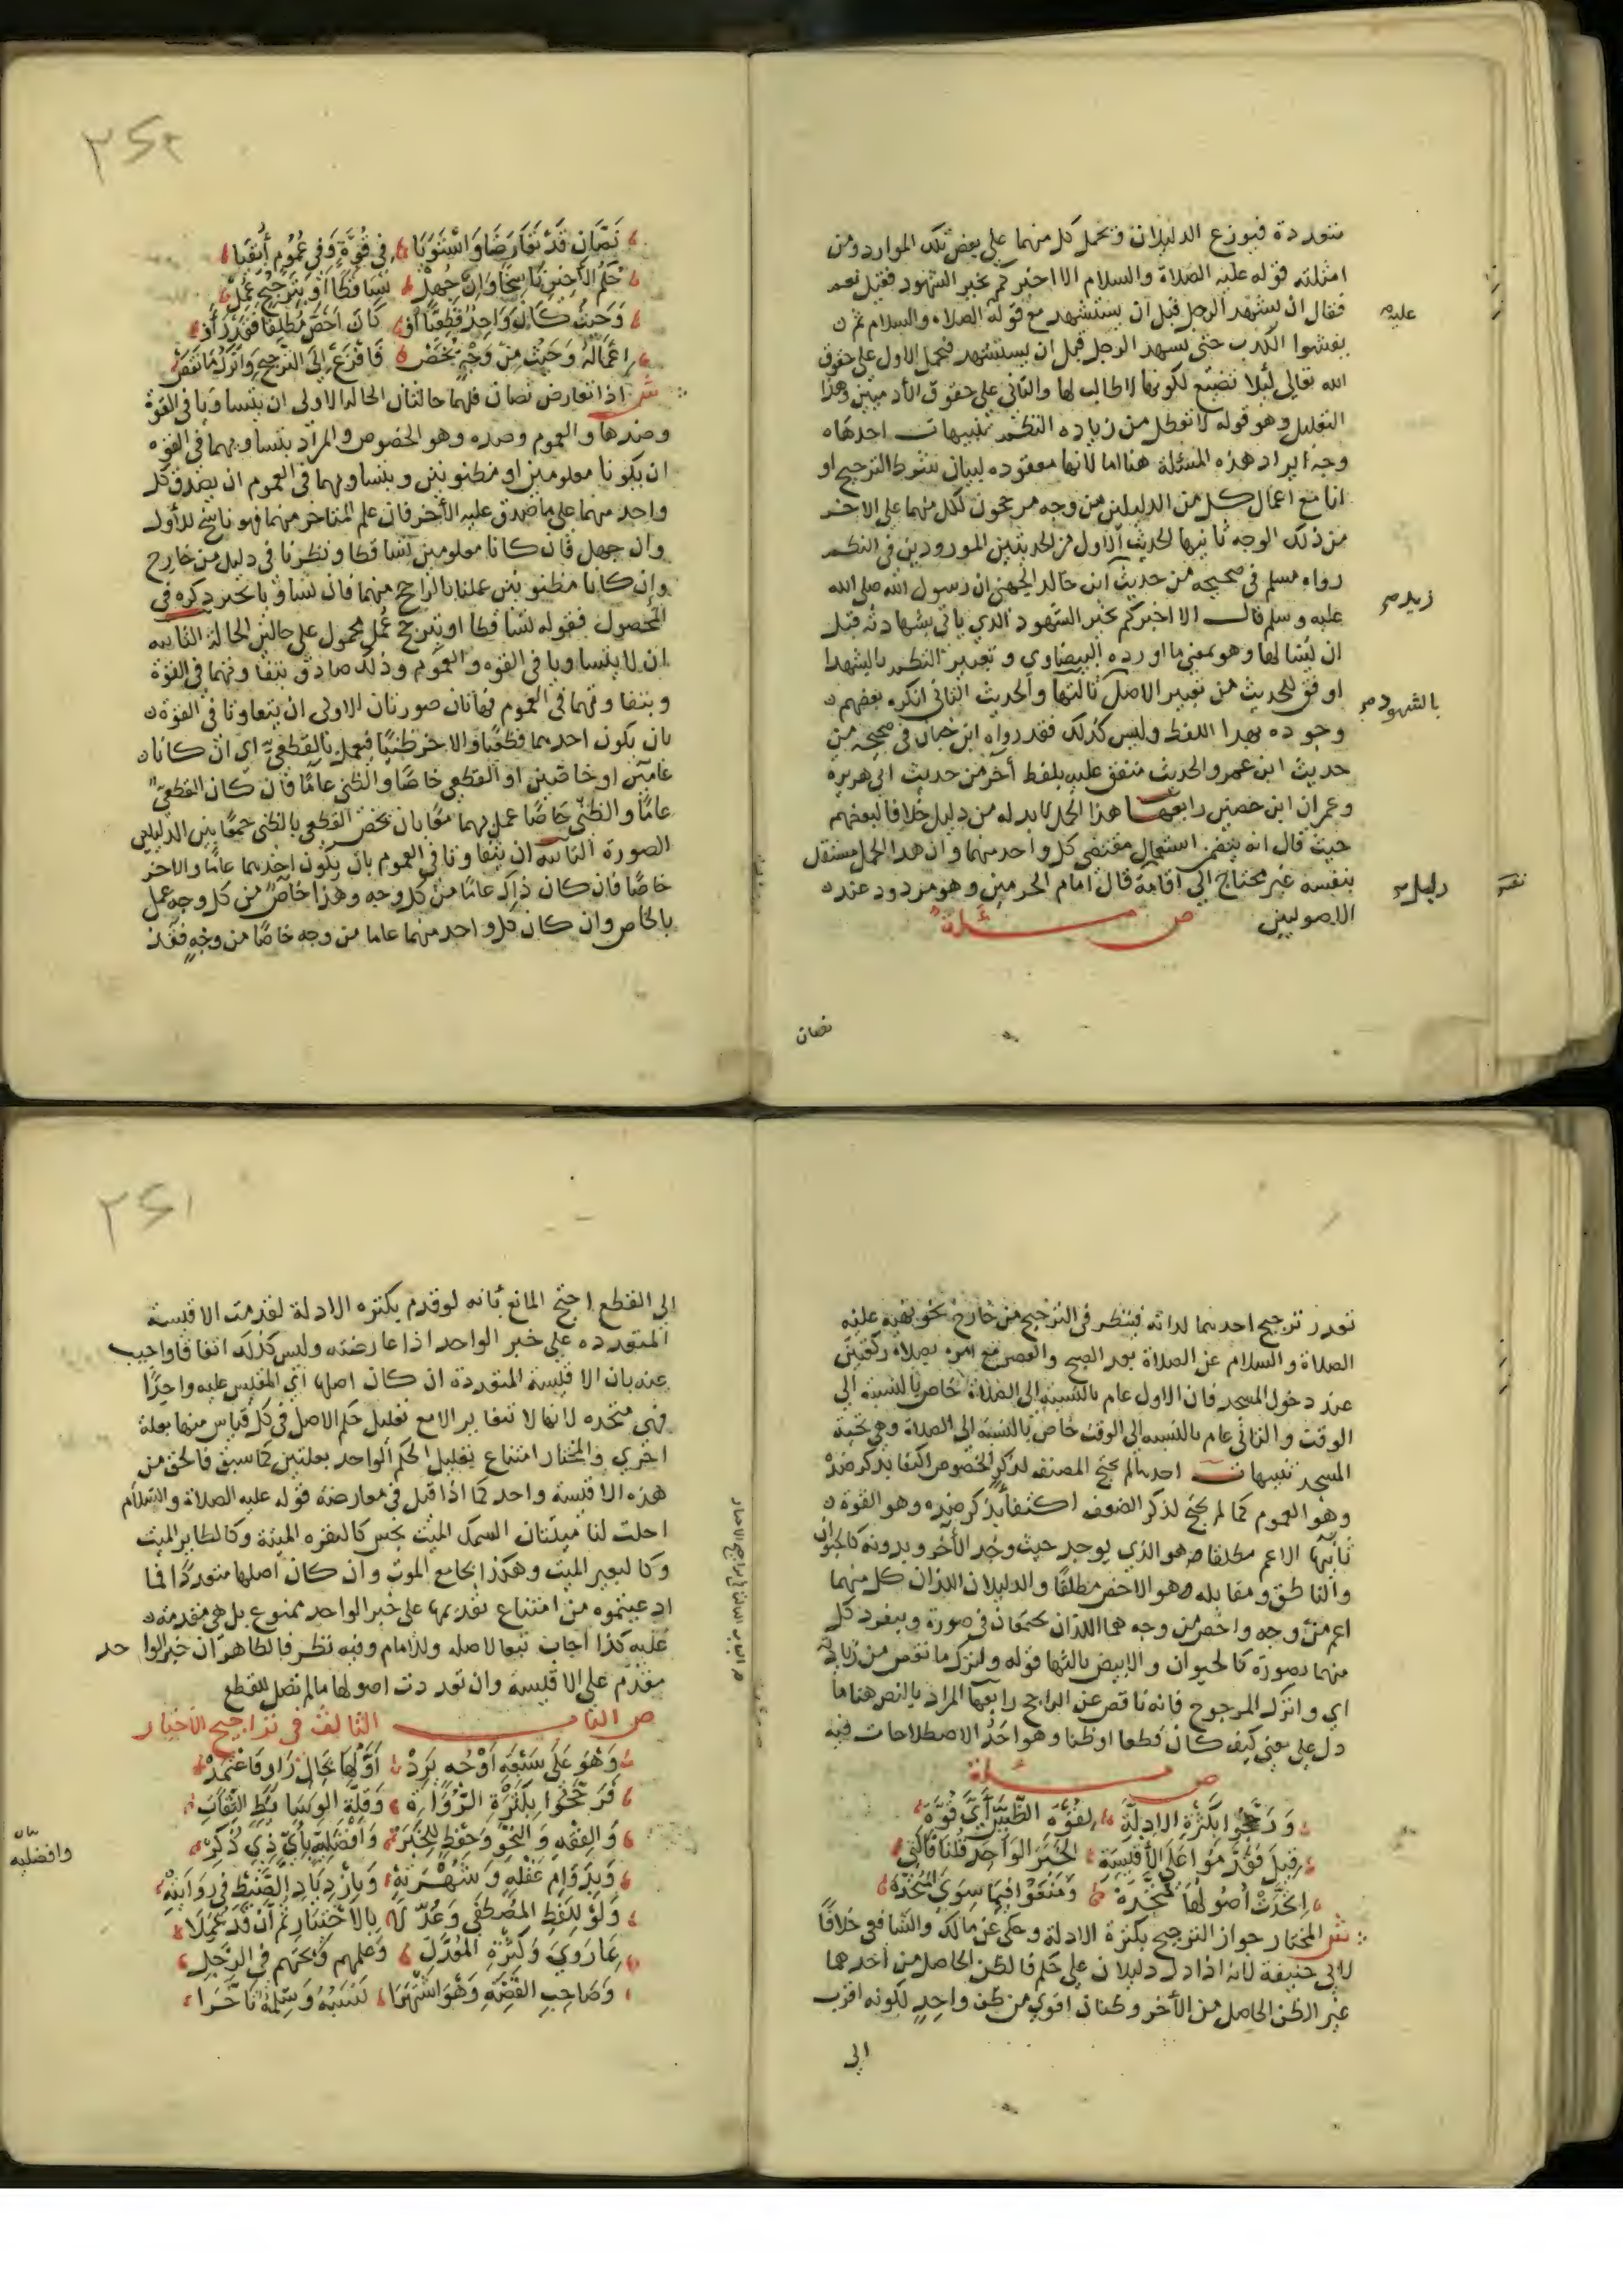 متعددة فيوزع الدليلان ويحمل كل منهما على بعض تلك الموارد ومن
امثلته قوله عليه الصلاة والسلام الا اخبركم بخير الشهود فقيل نعم
فقال ان يشهد الرجل قبل ان يستشهد مع قوله الصلاة والسلام ثم
عليه
يفشوا الكذب حتى يشهد الرجل قبل ان يستشهد فيحمل الاول على حقوق
الله تعالى لئلا تضيع لكونها لا طالب لها والثاني على حقوق الادميين وهذا
التعليل وهو قوله من زياده النظم تنبيهات احدها
وجه ايراد هذه المسئلة هنا انها معقوده لبيان شرط الترجيح او
انا مع اعمال كل من الدليلين من وجه مرجحون لكل منهما على الاخر
من ذلك الوجه ثانيها الحديث الاول من الحديثين الموردين في النظم
رواه مسلم في صحيحه من حديث ابن خالد الجهني ان رسول الله صلى الله
زيد صح
عليه وسلم قال الا اخبركم بخير الشهود الذي ياتي بشهادته قبل
ان يسالها وهو بمعنى ما اورده البيضاوي وتعبير النظم باليشهد
اوفق للحديث من تعبير الاصل ثالثها والحديث الثاني انكر بعضهم
بالشهود صح
وجوده بهذا اللفظ وليس كذلك فقد رواه ابن حبان في صحيحه من
حديث ابن عمر والحديث متفق عليه بلفظ آخر من حديث ابي هريرة
وعمران ابن حصين رابعها هذا الحمل لابد له من دليل خلافا لبعضهم
حيث قال انه يتضمن استعمال مقتضى كل واحد منهما وان هذا الحمل مستقل
بنفسه غير محتاج الى اقامة قال امام الحرمين وهو مردود عند
دليل صح
الاصوليين ص مسئلة
نصان
نصان قد تعارضا واستويا في قوة وفي عموم أبقيا
حكم الأخير ناسخا وان جهل تساقطا أو بترجيح عمل
وحيث كان واحد قطعيا أو كان اخص مطلقا فقد رأوا
إعماله وحيث من وجه يخص فافزع إلى الترجيح واترك ما نقص
ش اذا تعارض نصان فلهما حالتان الحالة الاولى ان يتساويا في القوة
وضدها والعموم وضده وهو الخصوص والمراد بتساويهما في القوه
ان يكونا معلومين او مظنونين وبتساويهما في العموم ان يصدق كل
واحد منهما على ما صدق عليه الأخر فان علم المتاخر منهما فهو ناسخ للأول
وان جهل فان كانا معلومين تساقطا ونظرنا في دليل من خارج
وإن كانا مظنونين عملنا بالراجح منهما فان تساويا تخير ذكره في
المحصول فقوله تساقطا او بترجيح عمل محمول على حالتين الحالة الثانيه
ان لا يتساويا في القوه والعموم وذلك صادق بتفاوتهما في القوة
وبتفاوتهما في العموم فهاتان صورتان الاولى ان يتفاوتا في القوة
بان يكون احدهما قطعيا والاخر ظنيا فيعمل بالقطعي اي ان كانا
عامين او خاصين او القطعي خاصا والظني عاما فان كان القطعي
عاما والظني خاصا عمل بهما معا بان يخص القطعي بالظني جمعا بين الدليلين
الصورة الثانيه ان يتفاوتا في العموم بان يكون احدهما عاما والاخر
خاصا فان كان ذاك عاما من كل وجه وهذا خاص من كل وجه عمل
بالخاص وان كان كل واحد منهما عاما من وجه خاصا من وجه فعند
تعذر ترجيح احدهما لذاته فينظر في الترجيح من خارج نحو نهيه عليه
الصلاة والسلام عن الصلاة بعد الصبح والعصر مع امره بصلاة ركعتين
عند دخول المسجد فان الاول عام بالنسبة إلى الصلاة خاص بالنسبة الى
الوقت والثاني عام بالنسبه الى الوقت خاص بالنسبة الى الصلاة وهي تحية
المسجد تنبيهات احدها لم يحتج المصنف لذكر الخصوص اكتفا بذكر ضده
وهو العموم كما لم يحتج لذكر الضعف اكتفاء بذكر ضده وهو القوة
ثانيها الاعم مطلقا هو الذي يوجد حيث وجد الأخر وبدونه كالحيوان
والناطق ومقابله هو الاخص مطلقا والدليلان اللذان كل منهما
اعم من وجه واخص من وجه هما اللذان يجتمعان في صورة وينفرد كل
منهما بصورة كالحيوان والابيض ثالثها قوله واترك ما نقص من زياداته
اي واترك المرجوح فانه ناقص عن الراجح رابعها المراد بالنص هنا ما
دل على معنى كيف كان قطعا او ظنا وهو احد الاصطلاحات فيه
ص مسئلة
ورجحوا بكثرة الادلة لقوة الظنين أي قوة
قيل فقدموا على الأقيسة الخبر الواحد قلنا فالتي
اتحدت أصولها متحدة ومنعوا فيما سوى المتحدة
ش المختار جواز الترجيح بكثرة الادلة وحكى عن مالك والشافعي خلافا
لابي حنيفة لانه اذا دل دليلان على حكم فالظن الحاصل من احدهما
غير الظن الحاصل من الأخر وظنان اقوى من ظن واحد لكونه اقرب
الى
الى القطع احتج المانع بأنه لو قدم بكثره الادلة لقدمت الاقيسة
المتعدده على خبر الواحد اذا عارضته وليس كذلك اتفاقا واجيب
عنه بان الاقيسة المتعددة ان كان اصلها أي المقيس عليه واحدا
فهي متحده لانها لا تتغاير الا مع تعليل حكم الاصل في كل قياس منها بعلة
اخرى والمختار امتناع تعليل الحكم الواحد بعلتين كما سبق فالحق من
هذه الاقيسة واحد كما اذا قيل في معارضة قوله عليه الصلاة والسلام
احلت لنا ميتتان السمك الميت نجس كالبقره الميتة وكالطاير الميت
وكالبعير الميت وهكذا بجامع الموت وان كان اصلها متعددا فما
ادعيتموه من امتناع تقديمها على خبر الواحد ممنوع بل هي مقدمة
عليه كذا اجاب تبعا لاصله وللامام وفيه نظر فالظاهر ان خبر الواحد
مقدم على الاقيسة وان تعددت اصولها ما لم تصل للقطع
ص الباب الثالث في تراجيح الاخبار
وهو على سبعة أوجه يرد أولها بحال راو فاعتمد
فرجحوا بكثرة الرواة وقلة الوسايط الثقات
والفقه والنحو وحفظ للخبر وأفضلية بأي ذي ذكر
وافضليه
وبدوام عقله وشهرته وبازدياد الضبط في روايته
ولو للفظ المصطفى وعدلا بالاختبار ثم أن قد عملا
بما روى وكثرة المعدل وعلمهم وبحثهم في الرجل
وصاحب القصة وهو اشتهرا نسبه وسلمه تاخرا